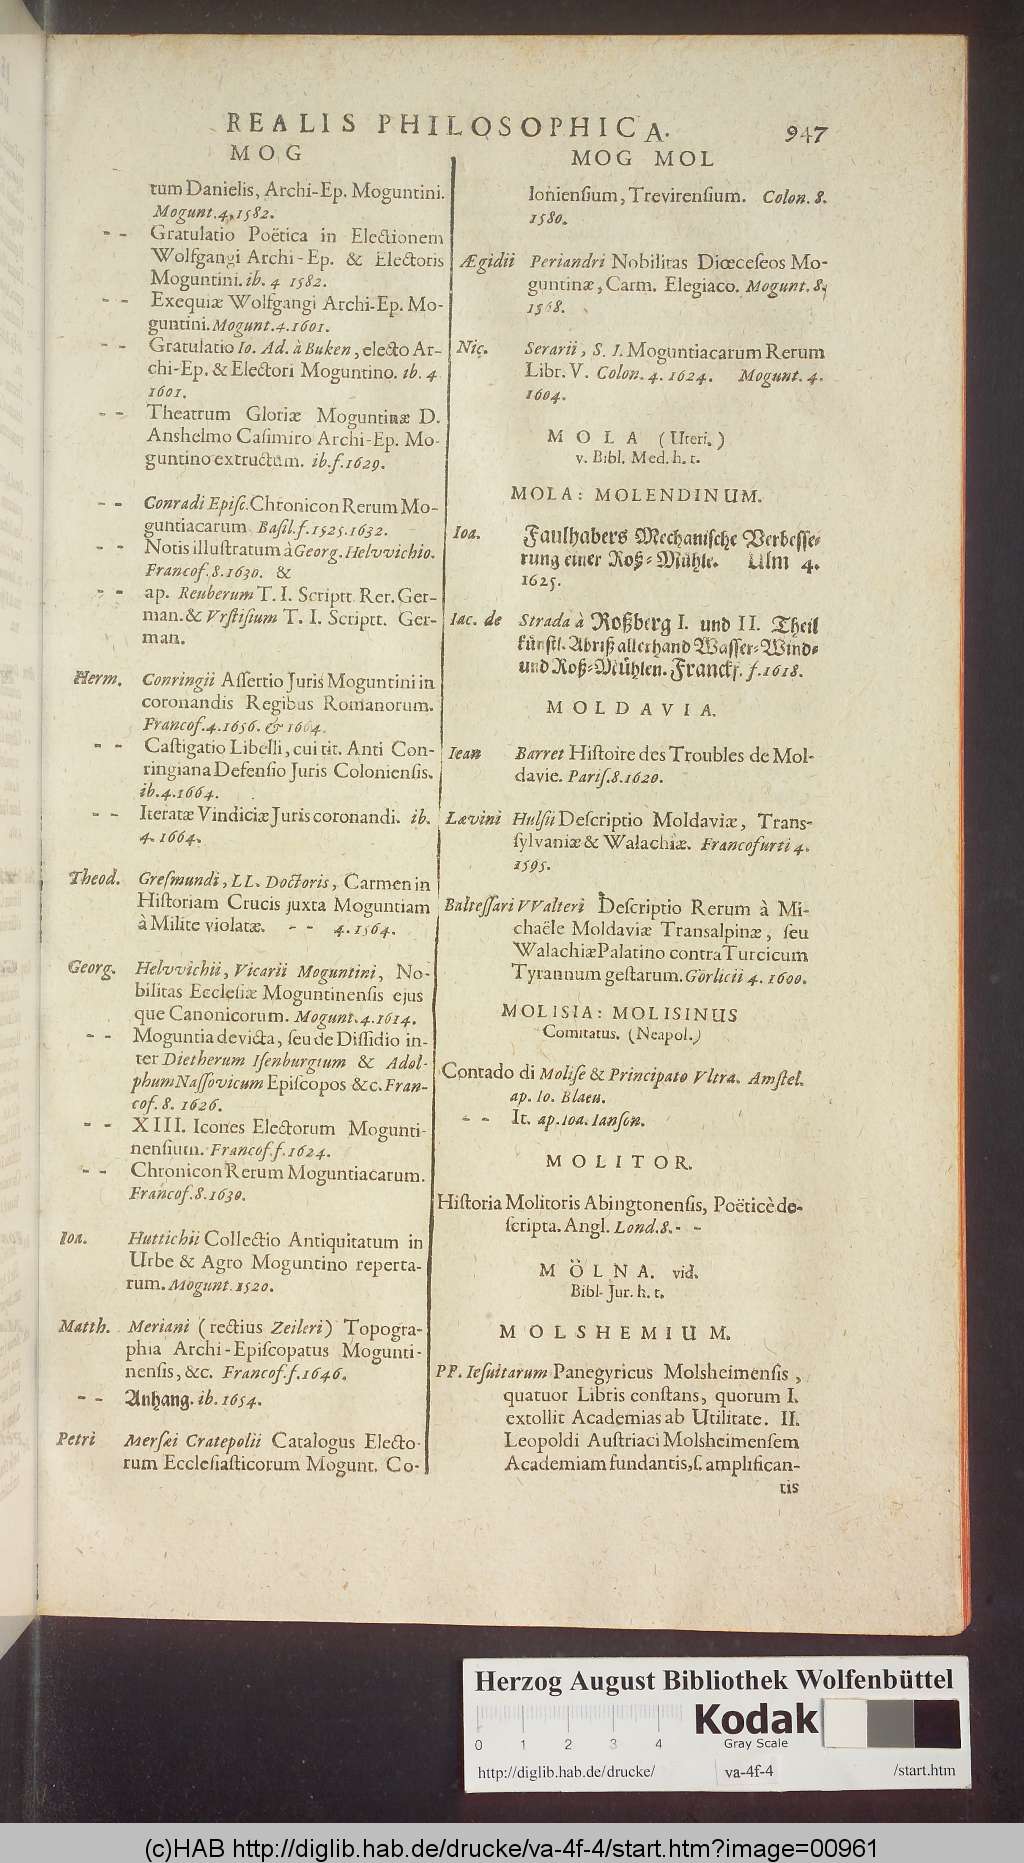 REALIS PHILOSOPHICA.
947
MOG
tum Danielis, Archi-Ep. Moguntini.
Mogunt. 4. 1582.
- - Gratulatio Poëtica in Electionem
Wolfgangi Archi-Ep. & Electoris
Moguntini. ib. 4 1582.
- - Exequiæ Wolfgangi Archi-Ep. Mo-
guntini. Mogunt. 4. 1601.
- - Gratulatio Io. Ad. à Buken, electo Ar-
chi-Ep. & Electori Moguntino. ib. 4
1601.
- - Theatrum Gloriæ Moguntinæ D.
Anshelmo Casimiro Archi-Ep. Mo-
guntino extructum. ib. f. 1629.
- - Conradi Episc. Chronicon Rerum Mo-
guntiacarum Basil. f. 1525. 1632.
- - Notis illustratum à Georg. Helvvichio.
Francof. 8. 1630. &
- - ap. Reuberum T. I. Scriptt. Rer. Ger-
man. & Vrstisium T. I. Scriptt. Ger-
man.
Herm. Conringii Assertio Juris Moguntini in
coronandis Regibus Romanorum.
Francof. 4. 1656. & 1664.
- - Castigatio Libelli, cui tit. Anti Con-
ringiana Defensio Juris Coloniensis.
ib. 4. 1664.
- - Iteratæ Vindiciæ Juris coronandi. ib.
4. 1664.
Theod. Gresmundi, LL. Doctoris, Carmen in
Historiam Crucis juxta Moguntiam
à Milite violatæ. - - 4. 1564.
Georg. Helvvichii, Vicarii Moguntini, No-
bilitas Ecclesiæ Moguntinensis ejus
que Canonicorum. Mogunt. 4. 1614.
- - Moguntia devicta, seu de Dissidio in-
ter Dietherum Isenburgium & Adol-
phum Nassovicum Episcopos &c. Fran-
cof. 8. 1626.
- - XIII. Icones Electorum Mogunti-
nensium. Francof. f. 1624.
- - Chronicon Rerum Moguntiacarum.
Francof. 8. 1630.
Ioa. Huttichii Collectio Antiquitatum in
Urbe & Agro Moguntino reperta-
rum. Mogunt. 1520.
Matth. Meriani (rectius Zeileri) Topogra-
phia Archi-Episcopatus Mogunti-
nensis, &c. Francof. f. 1646.
- - Anhang. ib. 1654.
Petri Mersæi Cratepolii Catalogus Electo-
rum Ecclesiasticorum Mogunt. Co-
MOG MOL
loniensium, Trevirensium. Colon. 8.
1580.
Ægidii Periandri Nobilitas Diœceseos Mo-
guntinæ, Carm. Elegiaco. Mogunt. 8.
1568.
Nic. Serarii, S. I. Moguntiacarum Rerum
Libr. V. Colon. 4. 1624. Mogunt. 4.
1604.
MOLA (Uteri.)
v. Bibl. Med. h. t.
MOLA: MOLENDINUM.
Ioa. Faulhabers Mechanische Verbesse-
rung einer Roß-Mühle. Ulm 4.
1625.
Iac. de Strada à Roßberg I. und II. Theil
künstl. Abriß allerhand Wasser-Wind-
und Roß-Mühlen. Franckf. f. 1618.
MOLDAVIA.
Iean Barret Histoire des Troubles de Mol-
davie. Paris. 8. 1620.
Lævini Hulsii Descriptio Moldaviæ, Trans-
sylvaniæ & Walachiæ. Francofurti 4.
1595.
Baltessari VValteri Descriptio Rerum à Mi-
chaële Moldaviæ Transalpinæ, seu
Walachiæ Palatino contra Turcicum
Tyrannum gestarum. Görlicii 4. 1600.
MOLISIA: MOLISINUS
Comitatus. (Neapol.)
Contado di Molise & Principato Vltra. Amstel.
ap. Io. Blaeu.
- - It. ap. Ioa. Ianson.
MOLITOR.
Historia Molitoris Abingtonensis, Poëticè de-
scripta. Angl. Lond. 8. - -
MÖLNA. vid.
Bibl. Jur. h. t.
MOLSHEMIUM.
PP. Iesuitarum Panegyricus Molsheimensis,
quatuor Libris constans, quorum I.
extollit Academias ab Utilitate. II.
Leopoldi Austriaci Molsheimensem
Academiam fundantis, s. amplifican-
tis
Herzog August Bibliothek Wolfenbüttel
0 1 2 3 4
Kodak
Gray Scale
http://diglib.hab.de/drucke/ va-4f-4 /start.htm
(c)HAB http://diglib.hab.de/drucke/va-4f-4/start.htm?image=00961